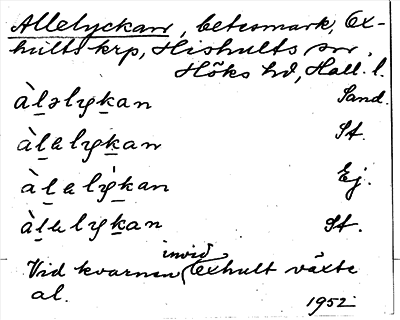 Allelyckan, betesmark, Ex-
hults krp, Hishults sn.
Höks hd, Hall. l.
àḻəlyḵan Sand.
àḻalyḵan St.
àḻalýḵan Ej.
àḻalyḵan St.
Vid kvarnen invid Exhult växte
al. 1952